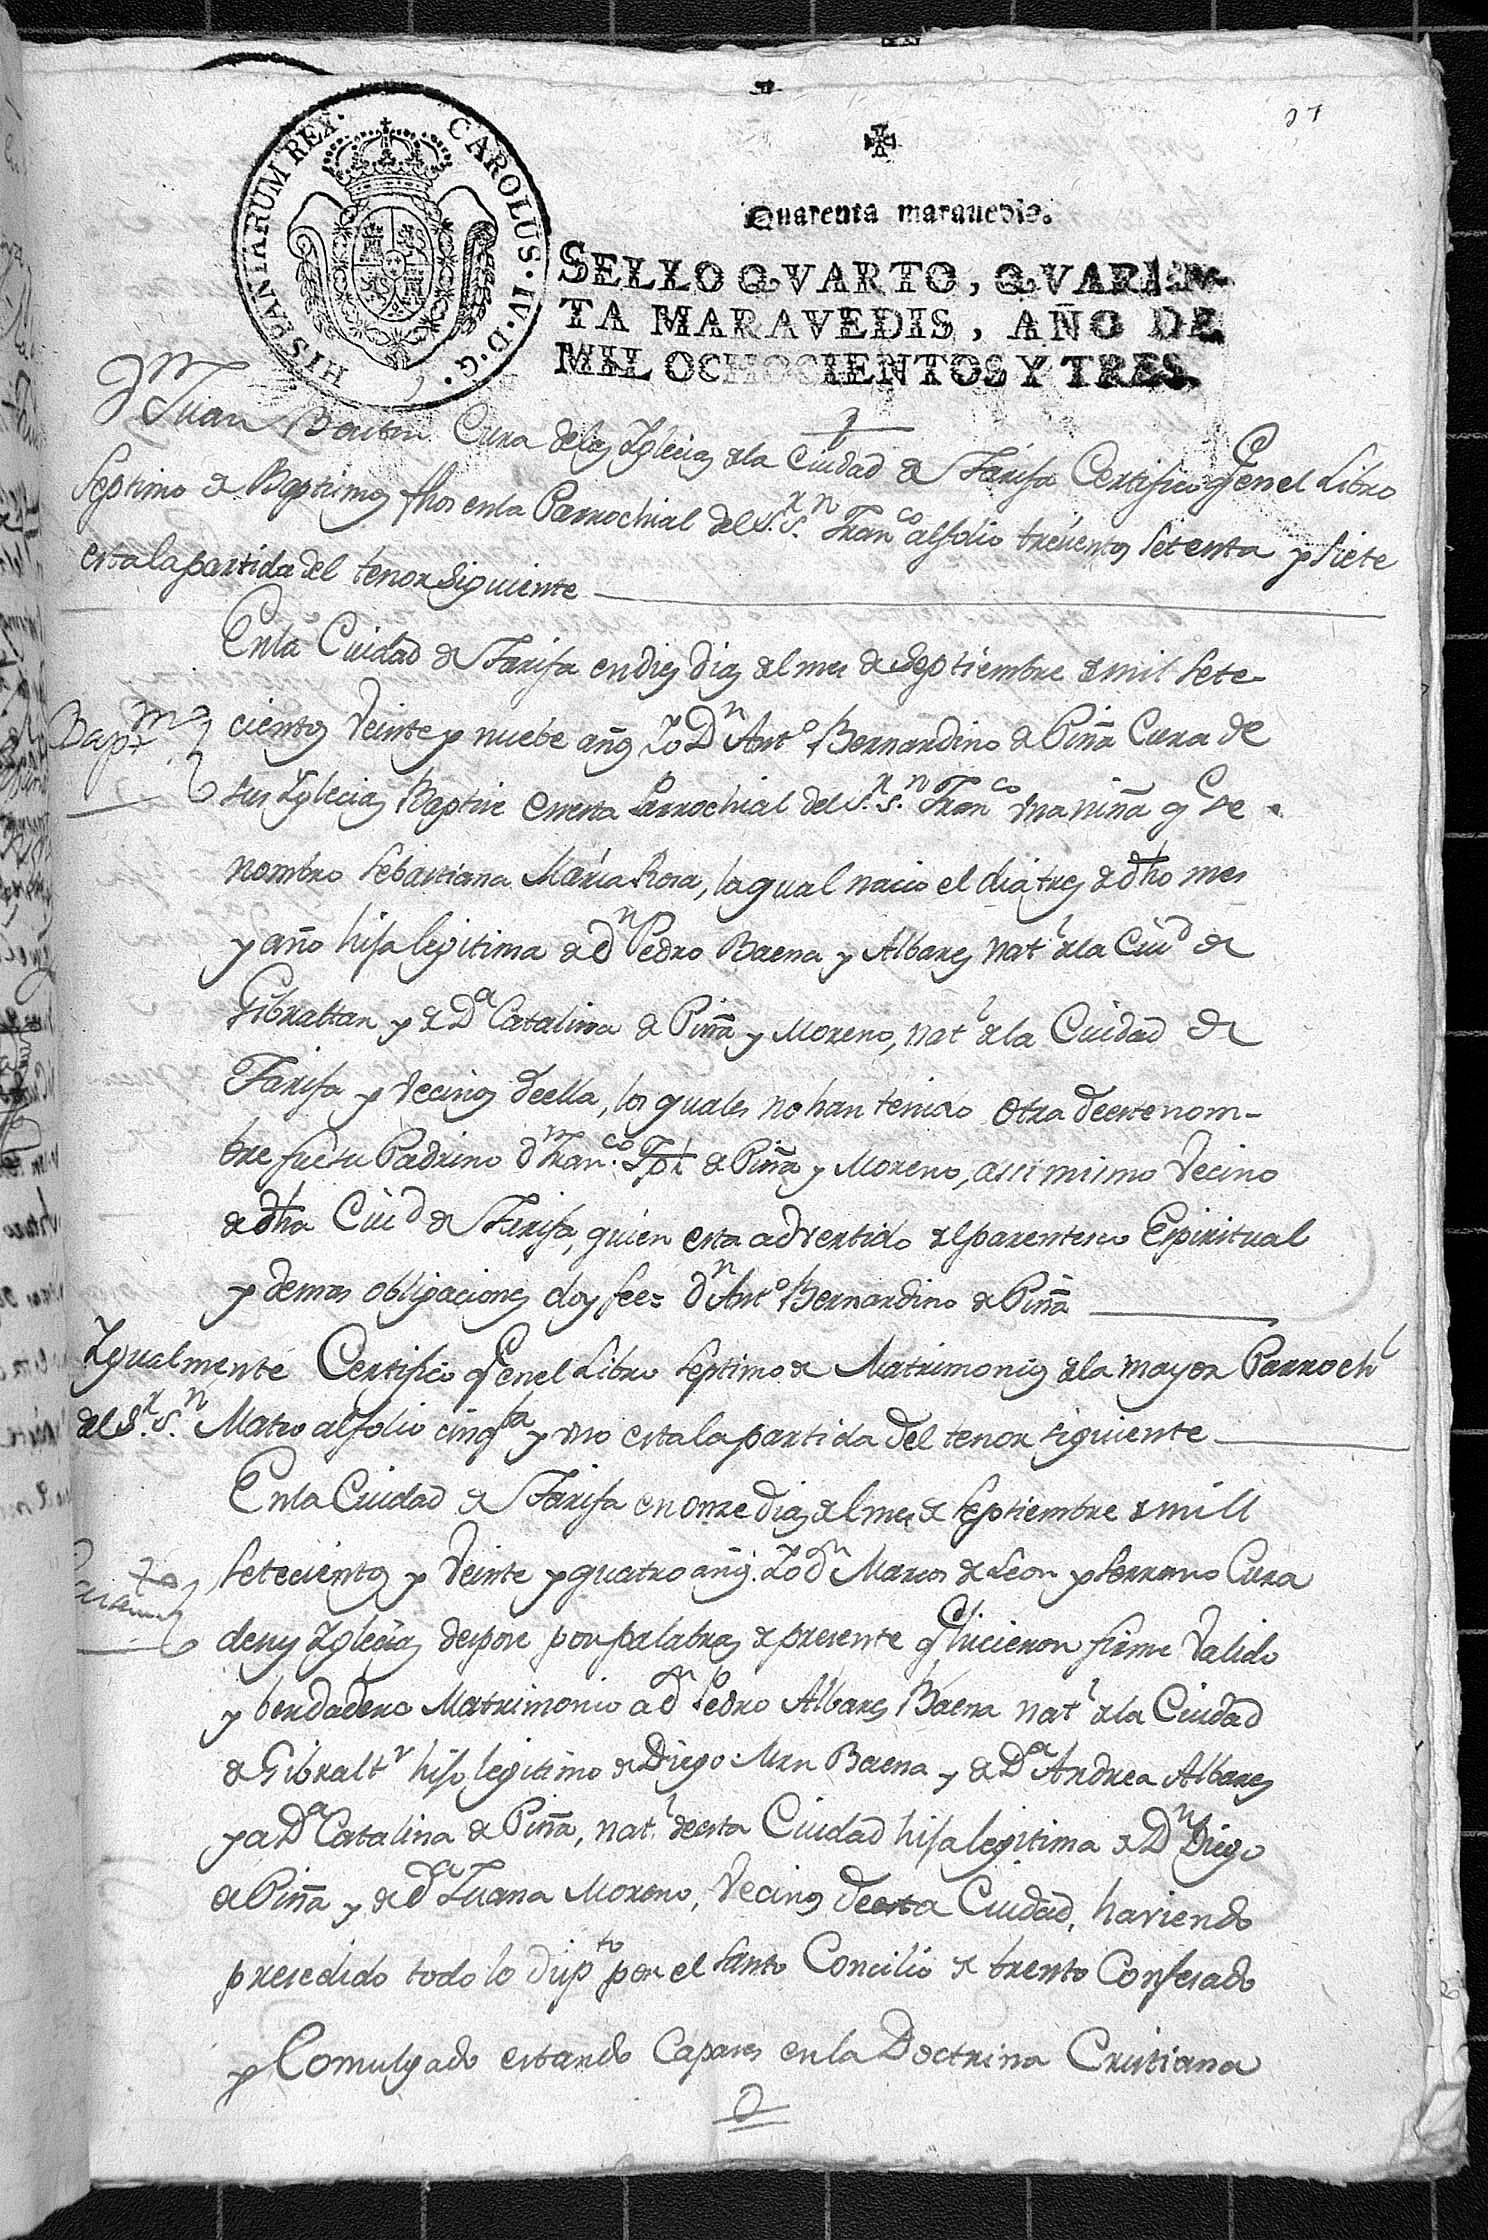 27
HISPANIARUM REX. CAROLUS. IV. D. G.
Quarenta maravedis.
SELLO QVARTO, QVAREN-
TA MARAVEDIS, AÑO DE
MIL OCHOCIENTOS Y TRES.
Dn Juan Cura delas Yglecias de la Ciudad de Tarifa Certifico q en el Libro
Septimo de Baptismos fhos en la Parrochial del Sr. Sn. Franco al folio trecientos setenta y siete
esta la partida del tenor Siguiente
En la Ciudad de Tarifa en dies dias del mes de Septiembre de mil sete-
Baptmo
cientos veinte y nuebe años Yo Dn Anto Bernardino de Piña Cura de
sus Yglecias Baptise en esta Parrochial del Sr. Sn. Franco vna niña q se
nombro Sebastiana Maria Rosa, la qual nacio el dia tres de dho mes
y año hija legitima de dn Pedro Baena y Albares natl de la Ciud de
Gibraltar y de Da Catalina de Piña y Moreno, natl de la Ciudad de
Tarifa y vecinos de ella, los quales no han tenido otra de este nom-
bre fue su Padrino dn Franco Jph de Piña y Moreno, assi mismo vecino
de dha Ciud de Tarifa, quien esta advertido del parentesco Espiritual
y demas obligaciones doy fee = Dn Anto Bernardino de Piña
Ygualmente Certifico q en el Libro septimo de Matrimonios de la mayor Parrochl
del Sr. Sn. Mateo al folio cinqta y vno esta la partida del tenor siguiente
En la Ciudad de Tarifa en onze dias del mes de Septiembre de mill
Casamto
setecientos y veinte y quatro años. Yo dn Marcos de Leon y Serrano Cura
de sus Yglecias despose por palabras de presente q hicieron firme valido
y berdadero Matrimonio a dn Pedro Albares Baena natl de la Ciudad
de Gibraltr hijo legitimo de Diego Mrn Baena y de Da Andrea Albares
y a Da Catalina de Piña, natl de esta Ciudad hija legitima de Dn Diego
de Piña y de da Juana Moreno, vecinos de esta Ciudad, haviendo
presedido todo lo dispto por el santo Concilio de trento Confesado
y Comulgado estando Capases en la Doctrina Cristiana